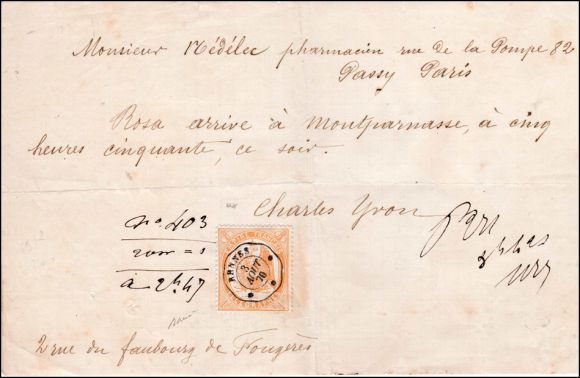 Monsieur Nédélec pharmacien rue de la Pompe 82
Passy Paris
Rosa arrive à Montparnasse, à cinq
heures cinquante, ce soir.
Charles Yvon
no 403
à 2h47
RENNES
3
AOUT
70
2 rue du faubourg de Fougères